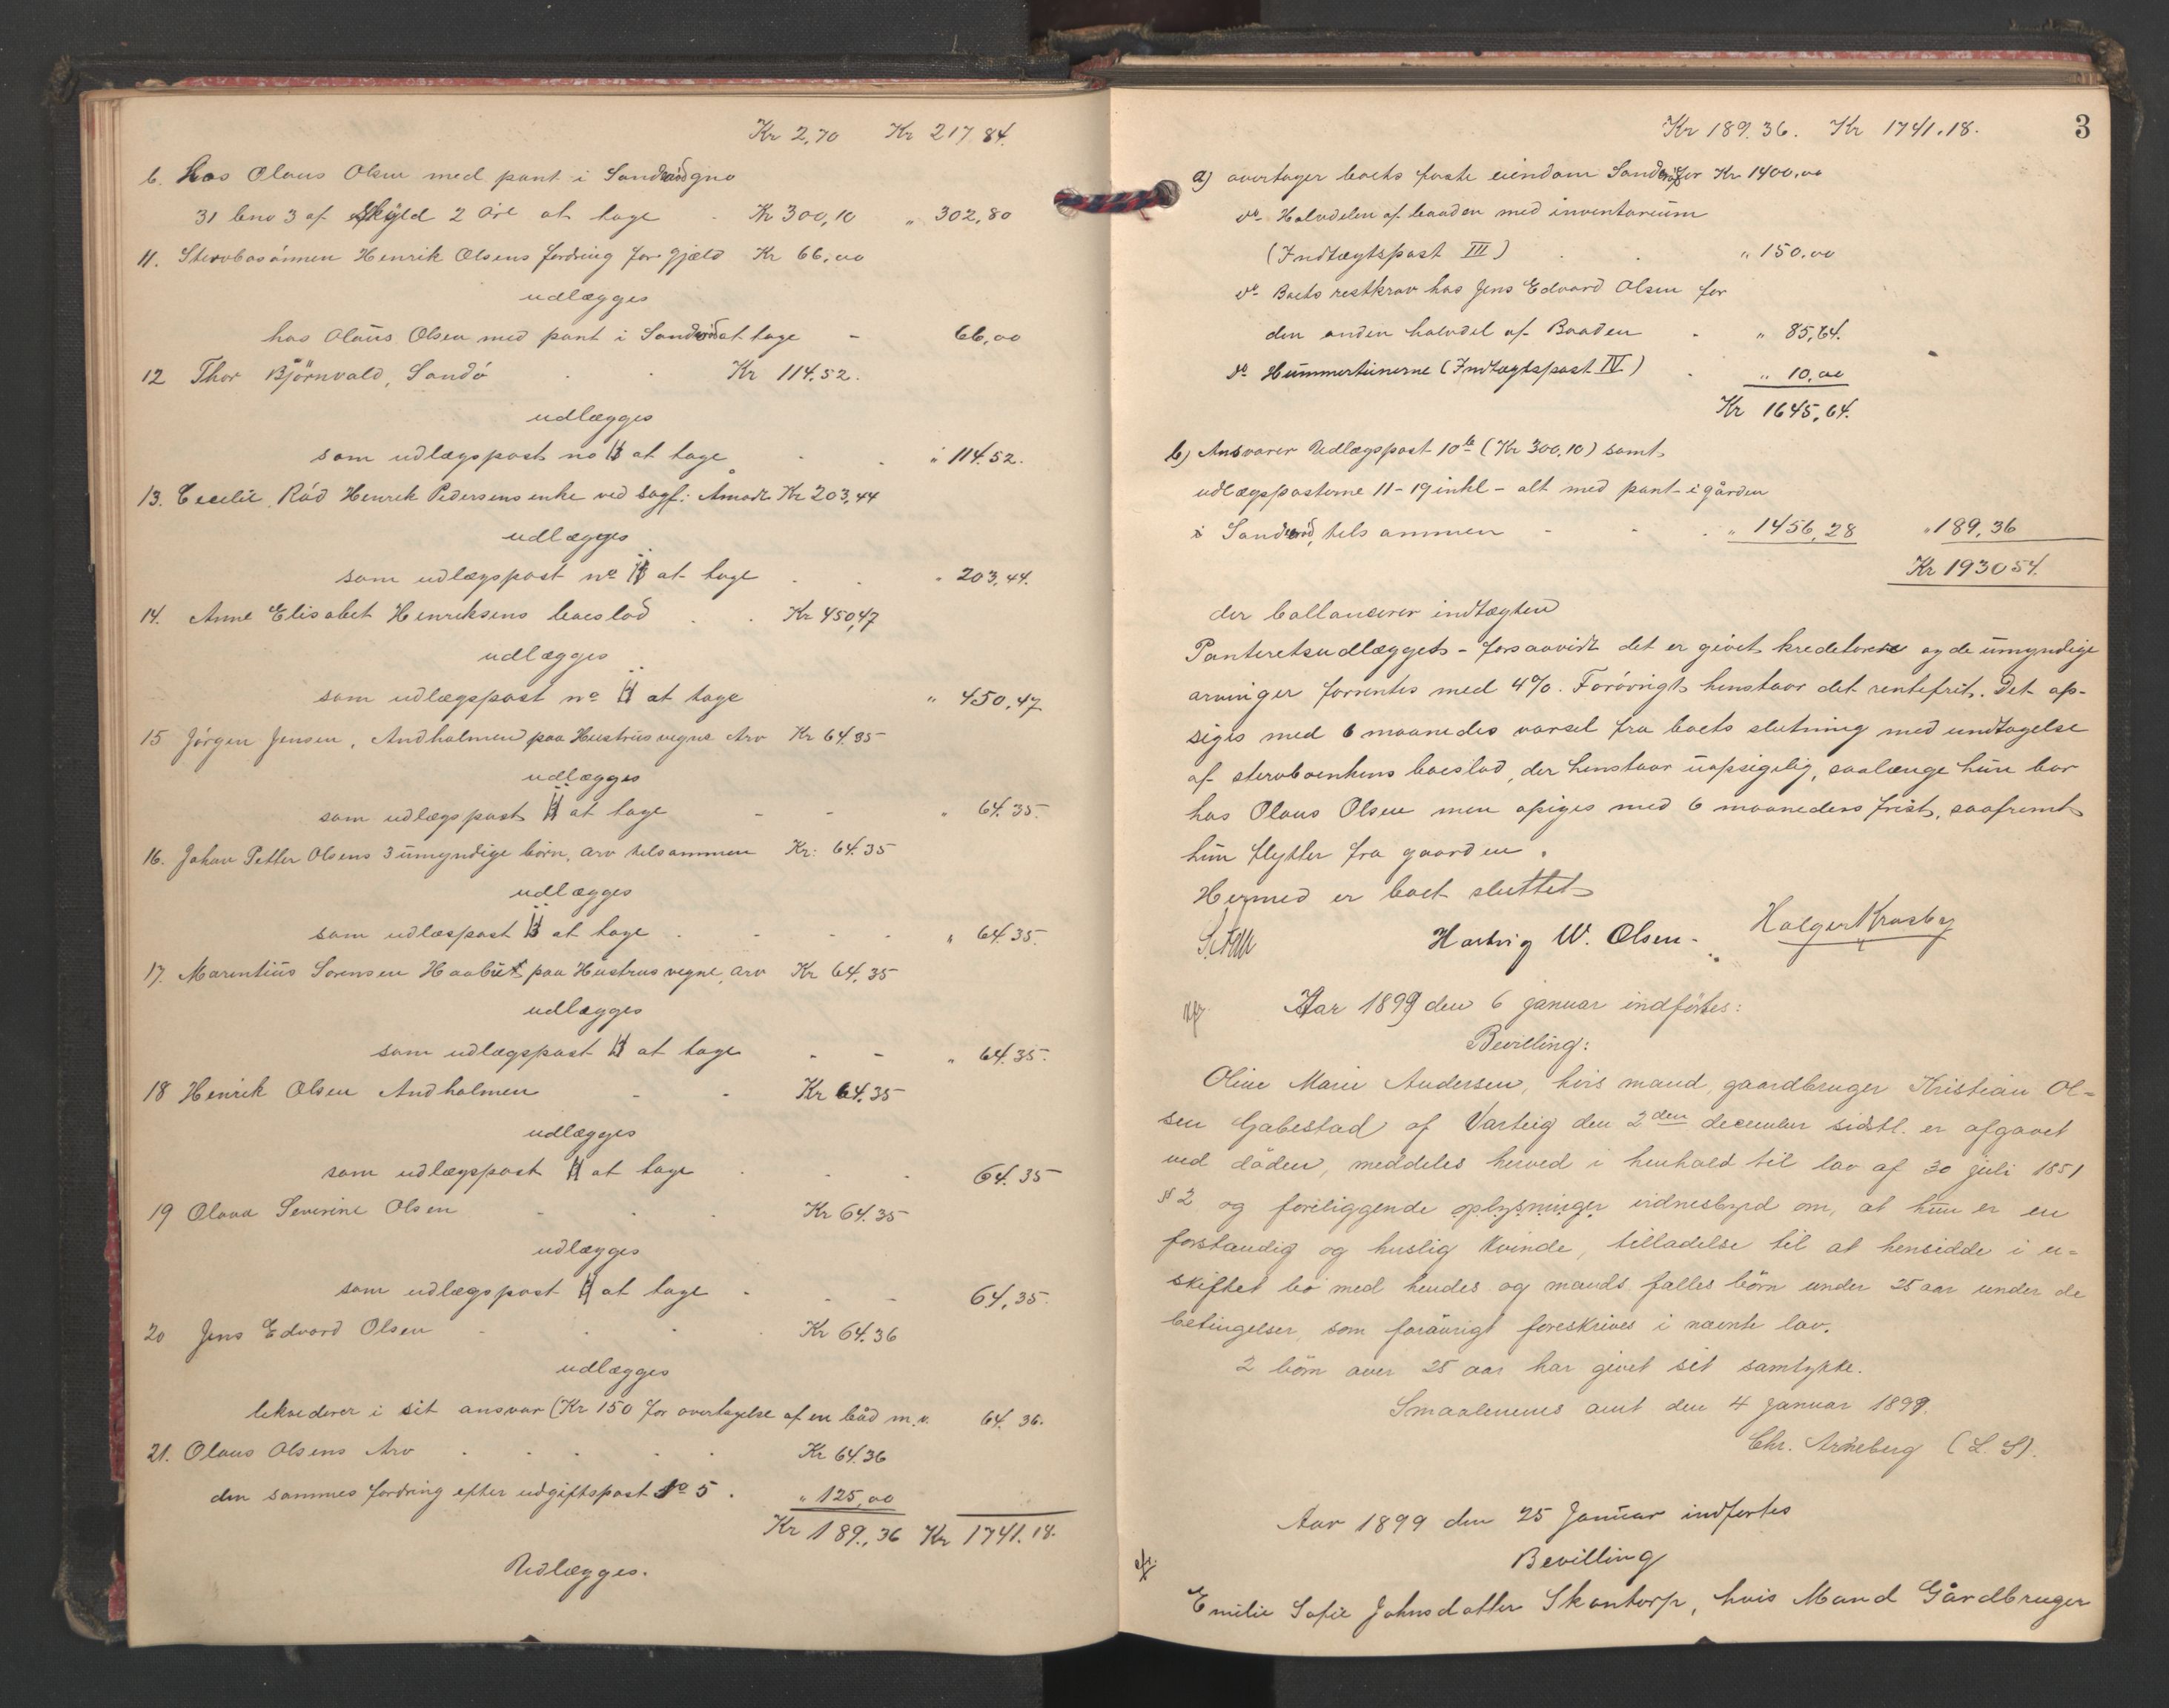 Kr 2,70 Kr 217,84.
b. hos Olaus Olsen med pant i Sandrød gno
31 bno 3 af Skyld 2 Øre at tage Kr 300,10 " 302,80
11. Stervbosønnen Henrik Olsens fordring for gjæld Kr 66,00
udlægges
hos Olaus Olsen med pant i Sandrød at tage - 66,00
12 Thor Björnvald, Sandö Kr 114.52.
udlægges
som udlægspost no at tage " 114.52.
13. Cecelie Röd Henrik Pedersens enke ved sagf. Amodt Kr 203,44
udlægges
som udlægspost no at tage " 203,44.
14. Anne Elisabet Henriksens boeslod Kr 450,47
udlægges
som udlægspost no at tage " 450,47
15 Jörgen Jensen, Andholmen paa Hustrus vegne Arv Kr 64.35
udlægges
som udlægspost at tage - - " 64.35.
16. Johan Petter Olsens 3 umyndige börn, arv tilsammen Kr: 64.35
udlægges
som udlæspost at tage - - - " 64.35.
17. Marentius Sorensen Haabut paa Hustrus vegne, arv Kr 64,35
udlægges
som udlægspost at tage - - " 64.35.
18 Henrik Olsen Andholmen - - Kr 64.35
udlægges
som udlægspost at tage - - 64.35
19 Olava Severine Olsen - - Kr 64.35
udlægges
som udlægspost at tage - - - 64,35.
20 Jens Edvard Olsen - Kr 64.36
udlægges
lekviderer i sit ansvar (Kr 150 for overtagelse af en båd m.v. 64.36.
21. Olaus Olsens Arv Kr 64.36
den sammes fordring efter udgiftspost No 5. " 125,00
Kr 189,36 Kr 1741.18.
Udlægges.
3
Kr 189.36. Kr 1741.18.
a) overtager boets faste eiendom Sandrød for Kr 1400,00
do Halvdelen af baaden med inventarium
(Indtægtspost III) " 150.00
do Boets restkrav hos Jens Edvard Olsen for
den anden halvdel af Baaden - " 85,64.
do Hummertinerne (Indtægtspost IV) " 10,00
Kr 1645,64.
b) Ansvarer Udlægspost 10b (Kr 300,10) samt
udlægsposterne 11-19 inkl - alt med pant i gården
i Sandrød, tilsammen - - " 1456,28 " 189,36
Kr 193054.
der ballancerer indtægten
Panteretsudlægget - forsaavidt det er givet kreditorere og de umyndige
arvinger forrentes med 4%. Forövrigt henstaar det rentefrit. Det op-
siges med 6 maaneders varsel fra boets slutning med undtagelse
af stervboenkens boeslod, der henstaar uopsigelig, saalænge hun bor
hos Olaus Olsen men opsiges med 6 maaneders frist, saafremt
hun flytter fra gaarden.
Hermed er boet sluttet
Hartvig W. Olsen - Holger Krosby
Aar 1899 den 6 januar indførtes:
Bevilling:
Oline Marie Andersen, hvis mand, gaardbruger Kristian Ol-
sen Gabestad af Varteig den 2den december sidstl. er afgaaet
ved döden, meddeles herved i henhold til lov af 30 juli 1851
§ 2 og foreliggende oplysninger vidnesbyrd om, at hun er en
forstandig og huslig kvinde, tilladelse til at hensidde i u-
skiftet bo med hendes og mands fælles börn under 25 aar under de
betingelser, som forövrigt foreskrives i nævnte lov.
2 börn over 25 aar har givet sit samtykke.
Smaalenenes amt den 4 januar 1899.
Chr. Arneberg (L. S).
Aar 1899 den 25 Januar indførtes
Bevilling
Emilie Sofie Johnsdatter Skantorp, hvis Mand Gårdbruger